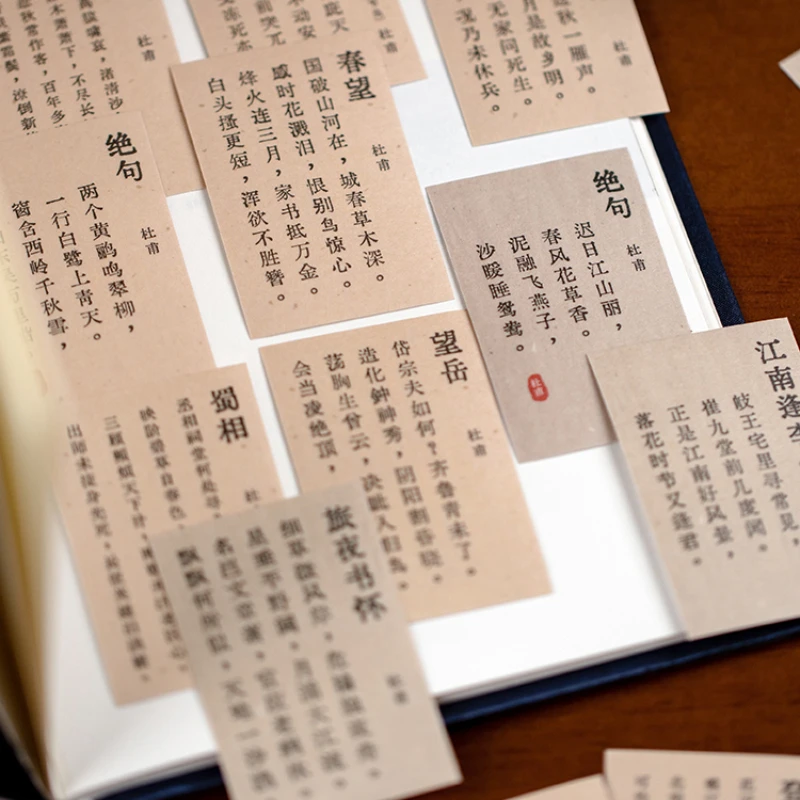 杜甫
猿啸哀，渚清沙
木萧萧下，不尽长
悲秋常作客，百年多
霜鬓，潦倒新
杜甫
秋一雁声。
月是故乡明。
无家问死生。
况乃未休兵。
杜甫
春望
杜甫
国破山河在，城春草木深。
感时花溅泪，恨别鸟惊心。
烽火连三月，家书抵万金。
白头搔更短，浑欲不胜簪。
绝句
杜甫
两个黄鹂鸣翠柳，
一行白鹭上青天。
窗含西岭千秋雪，
绝句
杜甫
迟日江山丽，
春风花草香。
泥融飞燕子，
沙暖睡鸳鸯。
杜甫
江南逢李
岐王宅里寻常见，
崔九堂前几度闻。
正是江南好风景，
落花时节又逢君。
望岳
杜甫
岱宗夫如何？齐鲁青未了。
造化钟神秀，阴阳割昏晓。
荡胸生曾云，决眦入归鸟。
会当凌绝顶，
蜀相
杜
丞相祠堂何处寻，
映阶碧草自春色，
三顾频烦天下计，
出师未捷身先死，长使英雄泪满襟。
旅夜书怀
杜甫
细草微风岸，危樯独夜舟。
星垂平野阔，月涌大江流。
名岂文章著，官应老病休。
飘飘何所似，天地一沙鸥